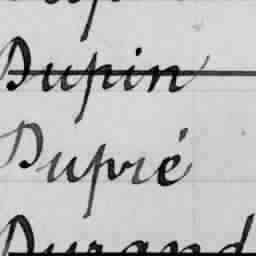 Dupin
Dupré
Durand